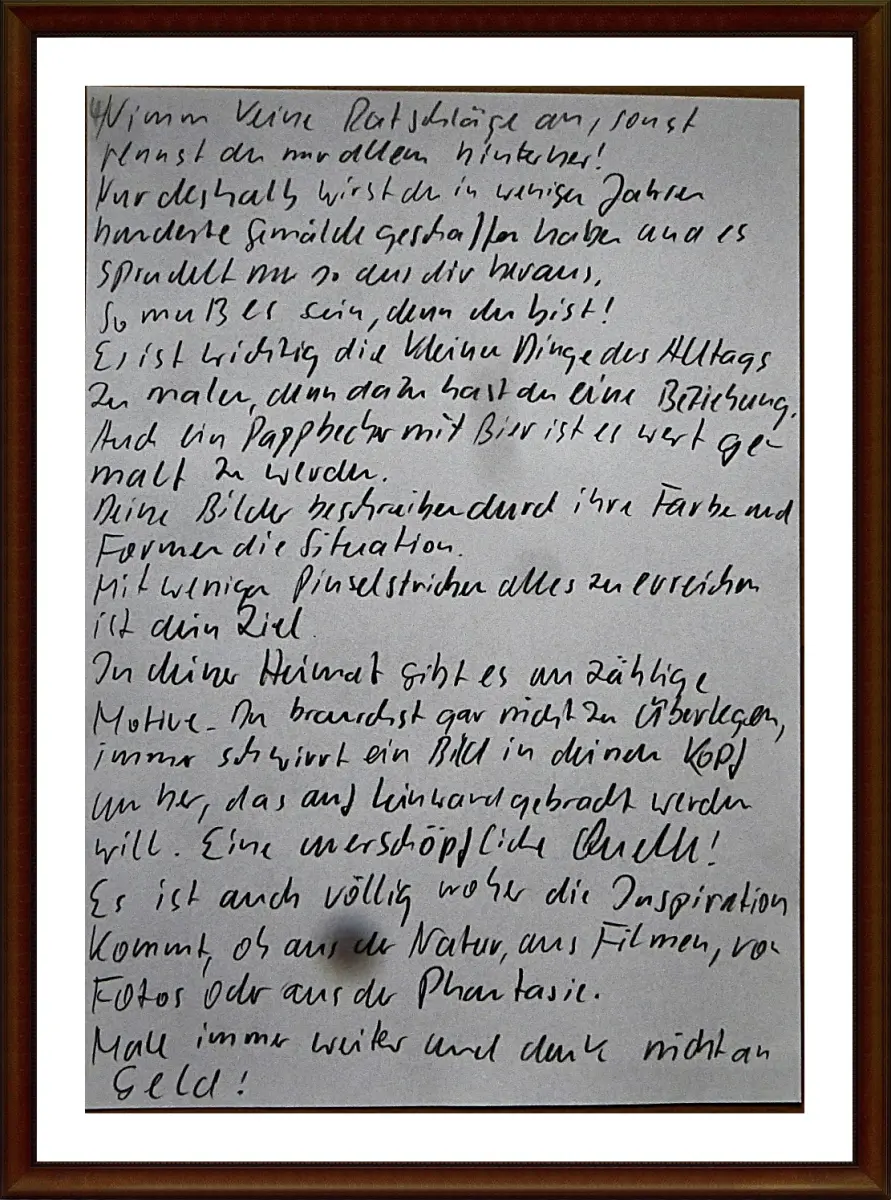 4/Nimm keine Ratschläge an, sonst
rennst du nur allem hinterher!
Nur deshalb wirst du in wenigen Jahren
hunderte Gemälde geschaffen haben und es
sprudelt nur so aus dir heraus,
So muß es sein, denn du bist!
Es ist wichtig die kleinen Dinge des Alltags
zu malen, denn dazu hast du eine Beziehung.
Auch ein Pappbecher mit Bier ist es wert ge-
malt zu werden.
Deine Bilder beschreiben durch ihre Farbe und
Formen die Situation.
Mit wenigen Pinselstrichen alles zu erreichen
ist dein Ziel.
In deiner Heimat gibt es unzählige
Motive. Du brauchst gar nicht zu überlegen,
immer schwirrt ein Bild in deinem Kopf
umher, das auf Leinwand gebracht werden
will. Eine unerschöpfliche Quelle!
Es ist auch völlig woher die Inspiration
kommt, ob aus der Natur, aus Filmen, von
Fotos oder aus der Phantasie.
Male immer weiter und denk nicht an
Geld!